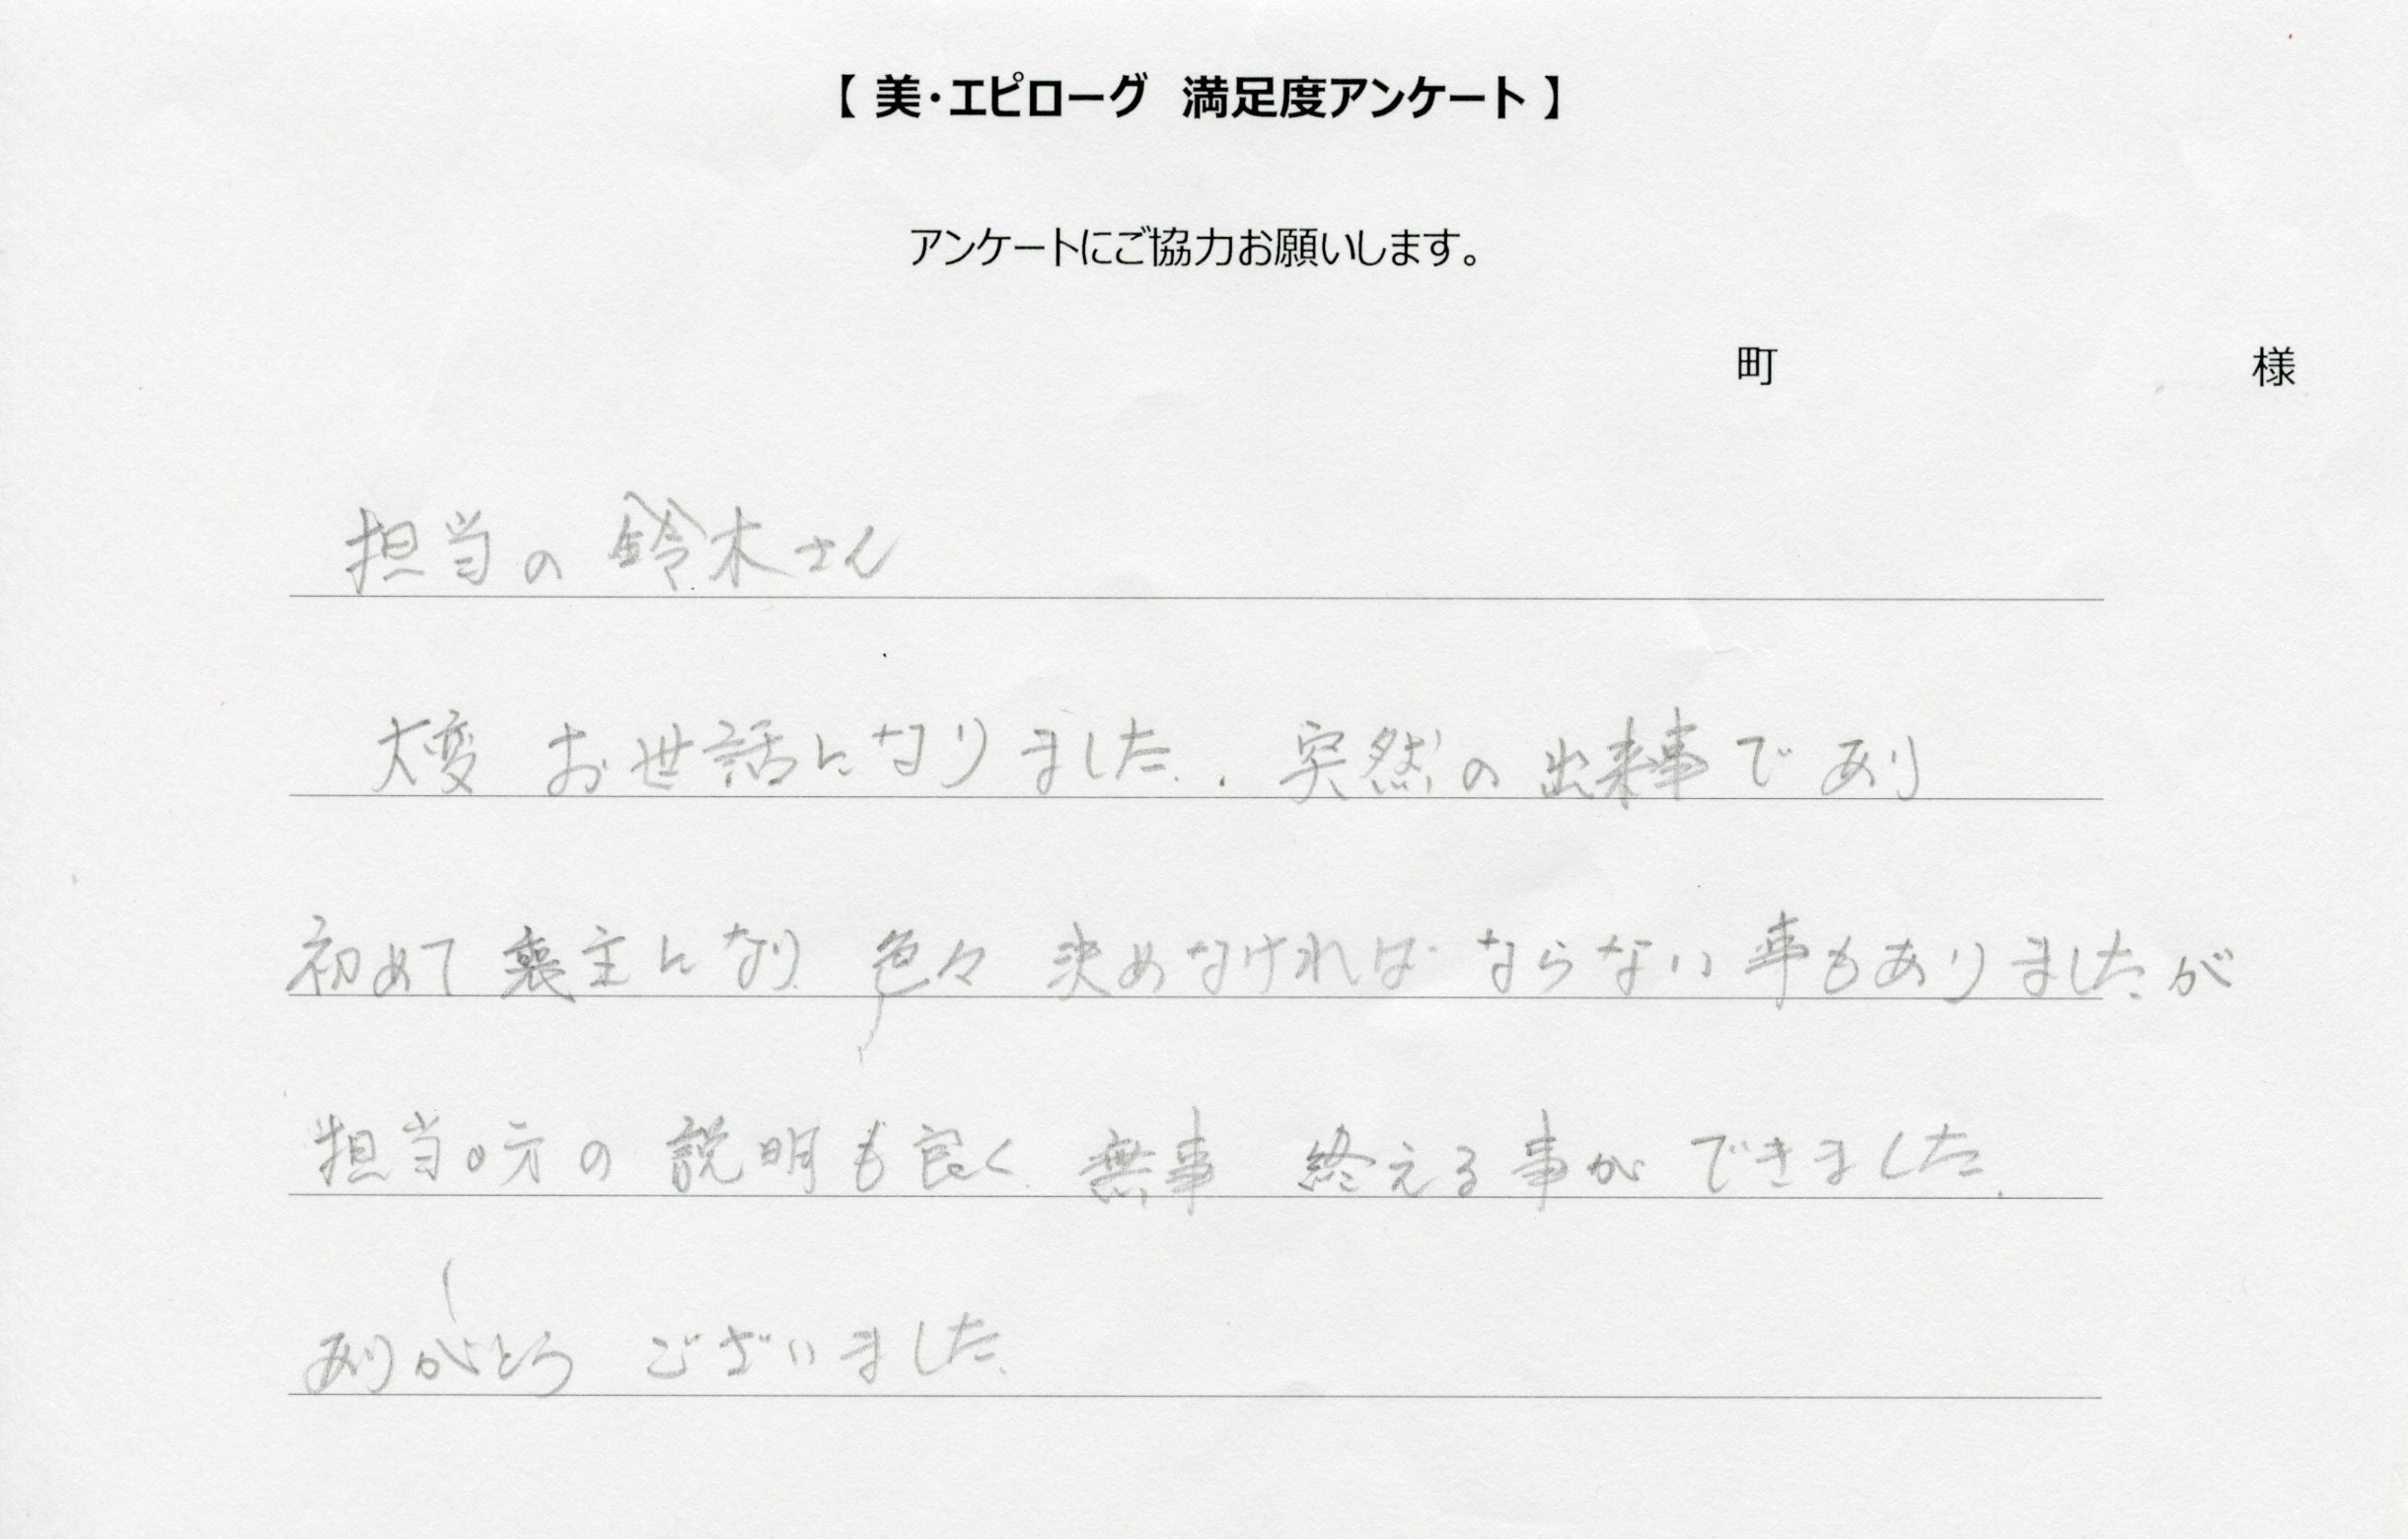 【 美・エピローグ 満足度アンケート 】
アンケートにご協力お願いします。
町 様
担当の 鈴木さん
大変 お世話になりました. 突然の 出来事で あり
初めて 喪主になり 色々 決めなければ ならない 事もありましたが
担当の方の 説明も良く 無事 終える事が できました.
ありがとう ございました.